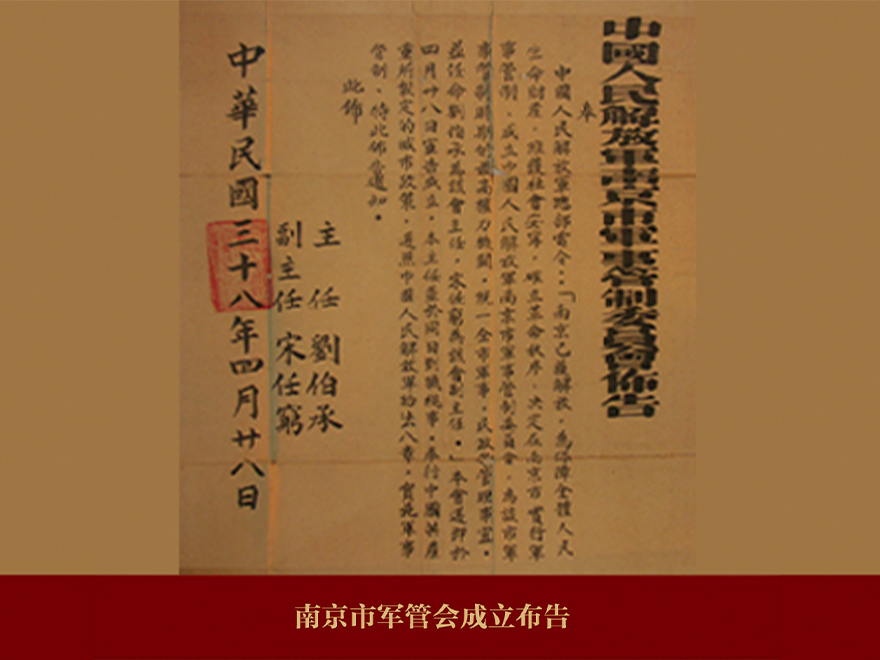 中國人民解放軍南京市軍事管制委員會佈告
奉
中國人民解放軍總部電令：「南京已獲解放，為保障全體人民
生命財產，維護社會安寧，確立革命秩序，決定在南京市實行軍
事管制，成立中國人民解放軍南京市軍事管制委員會，為該市軍
事管制時期的最高權力機關，統一全市軍事，民政等管理事宜。
並任命劉伯承為該會主任，宋任窮為該會副主任。」本會遵即於
四月廿八日宣告成立，本主任並於同日到職視事。奉行中國共產
黨所製定的城市政策，遵照中國人民解放軍約法八章，實施軍事
管制，特此佈告週知。
此佈
主 任 劉伯承
副主任 宋任窮
中華民國三十八年四月廿八日
南京市军管会成立布告